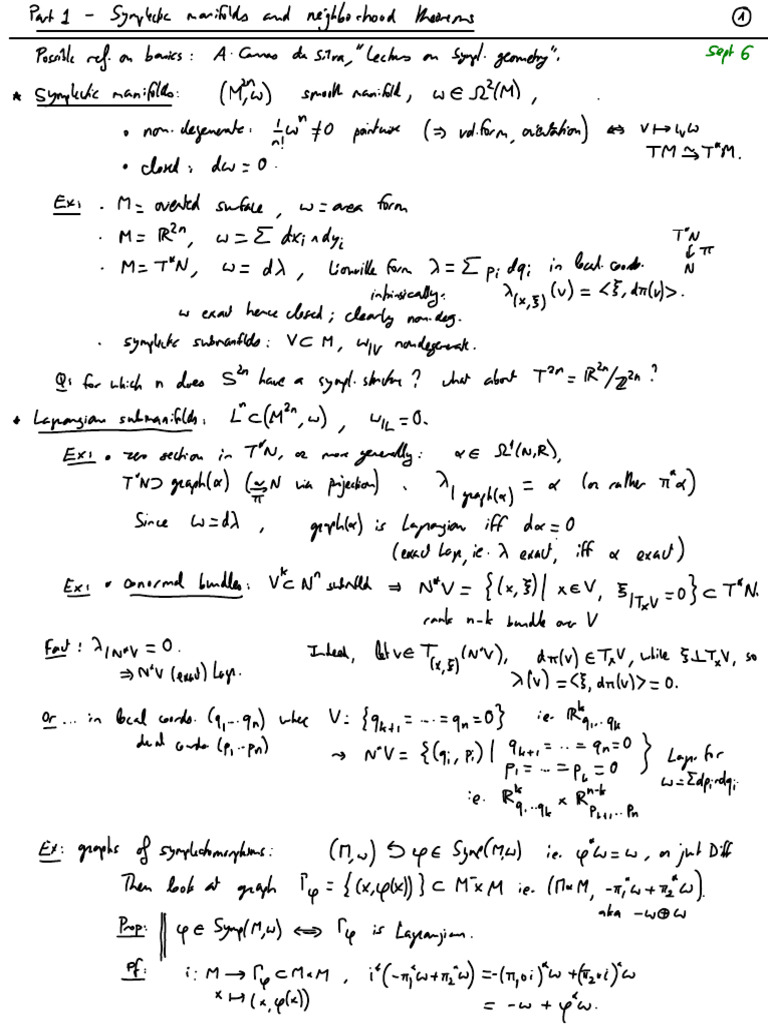 Part 1 - Symplectic manifolds and neighborhood theorems ①
Possible ref. on basics: A. Cannas da Silva, "Lectures on Sympl. geometry". Sept 6
* Symplectic manifolds: (M²ⁿ, ω) smooth manifold, ω ∈ Ω²(M),
• non-degenerate: 1/n! ωⁿ ≠ 0 pointwise (⇒ vol. form, orientation) ⇔ v ↦ ι_v ω
TM ≃→ T*M.
• closed: dω = 0.
Ex: · M = oriented surface, ω = area form
· M = ℝ²ⁿ, ω = Σ dx_i ∧ dy_i
· M = T*N, ω = dλ, Liouville form λ = Σ p_i dq_i in local coords. T*N ↓π N
intrinsically: λ_(x,ξ)(v) = <ξ, dπ(v)>.
ω exact hence closed; clearly nondeg.
· symplectic submanifolds: V ⊂ M, ω|_V nondegenerate.
Q: for which n does S²ⁿ have a sympl. structure? what about T²ⁿ = ℝ²ⁿ/ℤ²ⁿ?
* Lagrangian submanifolds: Lⁿ ⊂ (M²ⁿ, ω), ω|_L = 0.
Ex: • zero section in T*N, or more generally: α ∈ Ω¹(N,ℝ),
T*N ⊃ graph(α) (≃_π N via projection). λ|graph(α) = α (or rather π*α)
Since ω = dλ, graph(α) is Lagrangian iff dα = 0
(exact Lag., ie. λ exact, iff α exact)
Ex: • conormal bundles: Vᵏ ⊂ Nⁿ submfld ⇒ N*V = {(x,ξ) | x ∈ V, ξ|T_xV = 0} ⊂ T*N.
rank n-k bundle over V
Fact: λ|N*V = 0. Indeed, let v ∈ T_(x,ξ)(N*V), dπ(v) ∈ T_xV, while ξ ⊥ T_xV, so
⇒ N*V (exact) Lagr. λ(v) = <ξ, dπ(v)> = 0.
Or ... in local coords. (q₁...qₙ) where V = {q_{k+1} = ... = qₙ = 0} ie. ℝᵏ_{q₁..q_k}
dual coords (p₁...pₙ) ⇝ N*V = {(q_i, p_i) | q_{k+1} = ... = qₙ = 0
p₁ = ... = p_k = 0} Lagr. for ω = Σ dp_i ∧ dq_i
ie. ℝᵏ_{q₁..q_k} × ℝⁿ⁻ᵏ_{p_{k+1}...pₙ}
Ex: graphs of symplectomorphisms: (M,ω) ↺ φ ∈ Symp(M,ω) ie. φ*ω = ω, or just Diff
Then look at graph Γ_φ = {(x,φ(x))} ⊂ M⁻ × M ie. (M×M, -π₁*ω + π₂*ω).
aka -ω⊕ω
Prop: ‖ φ ∈ Symp(M,ω) ⇔ Γ_φ is Lagrangian.
Pf: i: M → Γ_φ ⊂ M×M, i*(-π₁*ω + π₂*ω) = -(π₁∘i)*ω + (π₂∘i)*ω
x ↦ (x, φ(x)) = -ω + φ*ω.